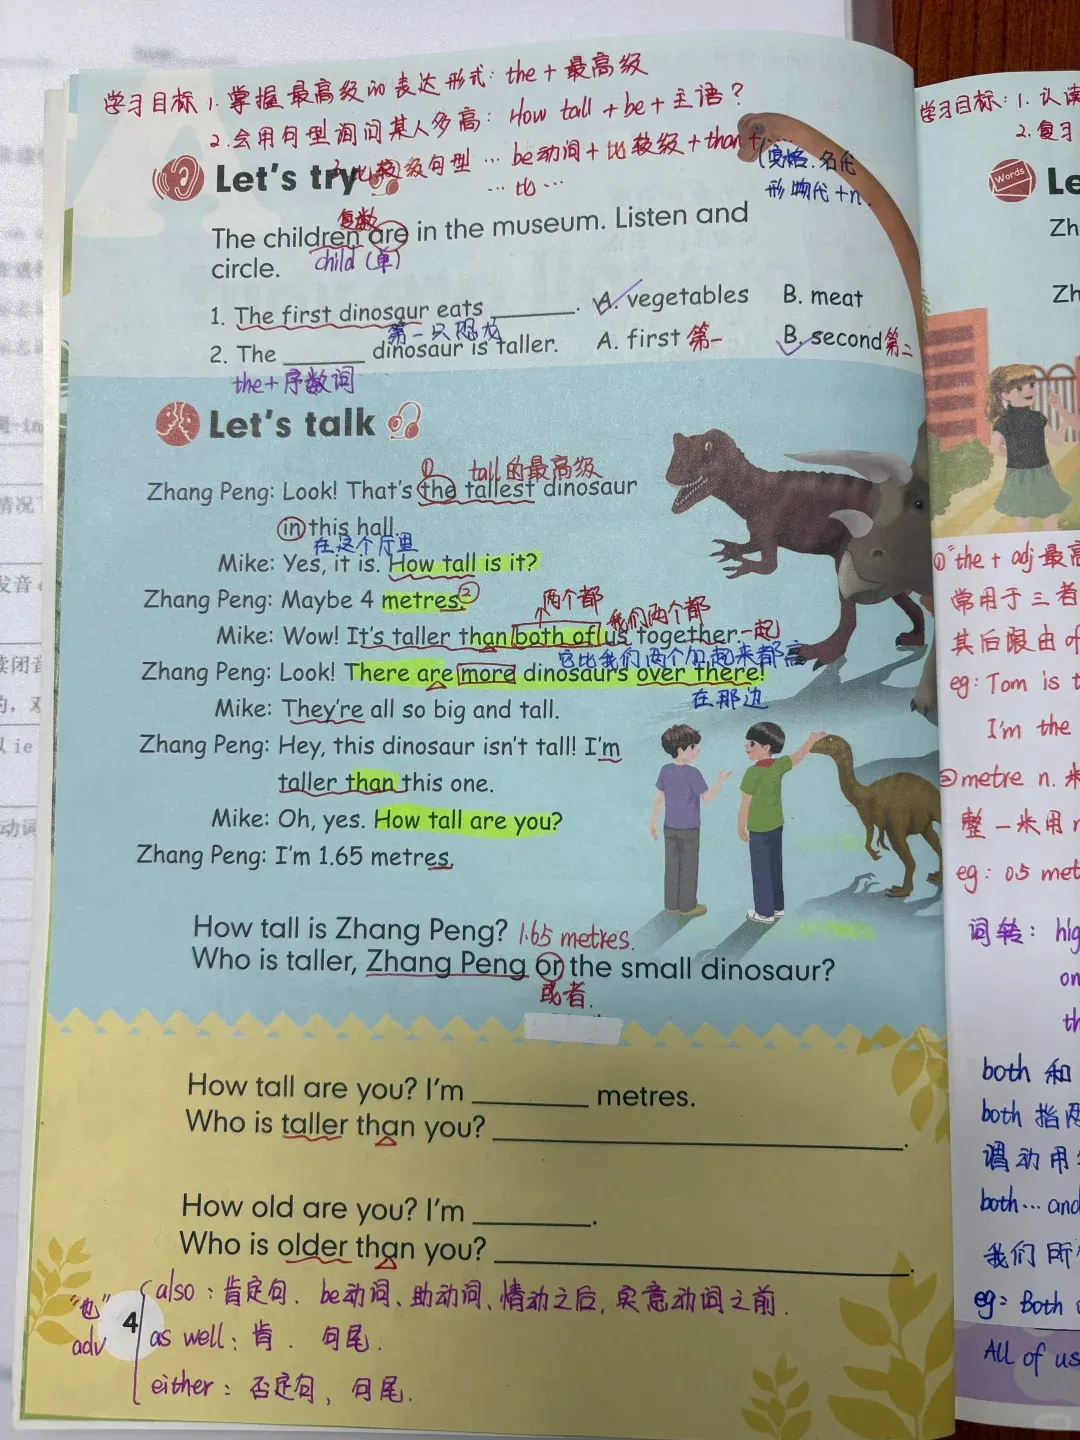 学习目标 1. 掌握最高级的表达形式: the + 最高级
2. 会用句型询问某人多高: How tall + be + 主语?
3. 比较级句型 … be动词 + 比较级 + than + …
… 比 …
(宾格. 名代
形物代 +n.
Let's try
复数
The children are in the museum. Listen and
circle.
child (单)
1. The first dinosaur eats ______. A. vegetables B. meat
第一只恐龙
2. The ______ dinosaur is taller. A. first 第一 B. second 第二
the + 序数词
Let's talk
① tall的最高级
Zhang Peng: Look! That's the tallest dinosaur
in this hall.
在这个厅里
Mike: Yes, it is. How tall is it?
Zhang Peng: Maybe 4 metres. ②
两个都 我们两个都
Mike: Wow! It's taller than both of us together. 一起
它比我们两个加起来都高
Zhang Peng: Look! There are more dinosaurs over there!
在那边
Mike: They're all so big and tall.
Zhang Peng: Hey, this dinosaur isn't tall! I'm
taller than this one.
Mike: Oh, yes. How tall are you?
Zhang Peng: I'm 1.65 metres.
How tall is Zhang Peng? 1.65 metres.
Who is taller, Zhang Peng or the small dinosaur?
或者.
How tall are you? I'm ______ metres.
Who is taller than you? ______.
How old are you? I'm ______.
Who is older than you? ______.
"也" adv
also : 肯定句. be动词、助动词、情动之后, 实意动词之前.
as well : 肯. 句尾.
either : 否定句, 句尾.
4
学习目标: 1. 认读
2. 复习
Words
Le
Zh
Zh
① "the + adj 最高
常用于三者
其后限由of
eg: Tom is t
I'm the
② metre n. 米
整一米用
eg: 0.5 met
词转: hig
on
th
both 和
both 指两
谓动用
both … and
我们所
eg: Both
All of us